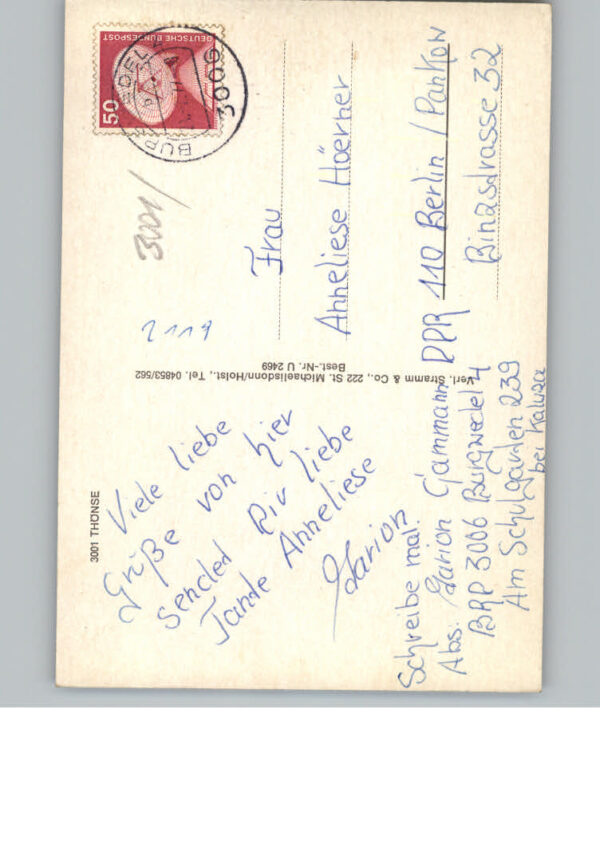 3001 THÖNSE
Viele liebe
Grüße von hier
sendet Dir liebe
Tante Anneliese
Marion
Schreibe mal.
Abs. Marion Gammann
BRD 3006 Burgwedel 4
Am Schulgarten 239
bei Kaluza
Verl. Stramm & Co., 222 St. Michaelisdonn/Holst., Tel. 04853/562
Best.-Nr. U 2469
50
DEUTSCHE BUNDESPOST
3006
3001/
2119
Frau
Anneliese Höerner
DDR 110 Berlin / Pankow
Binzstrasse 32